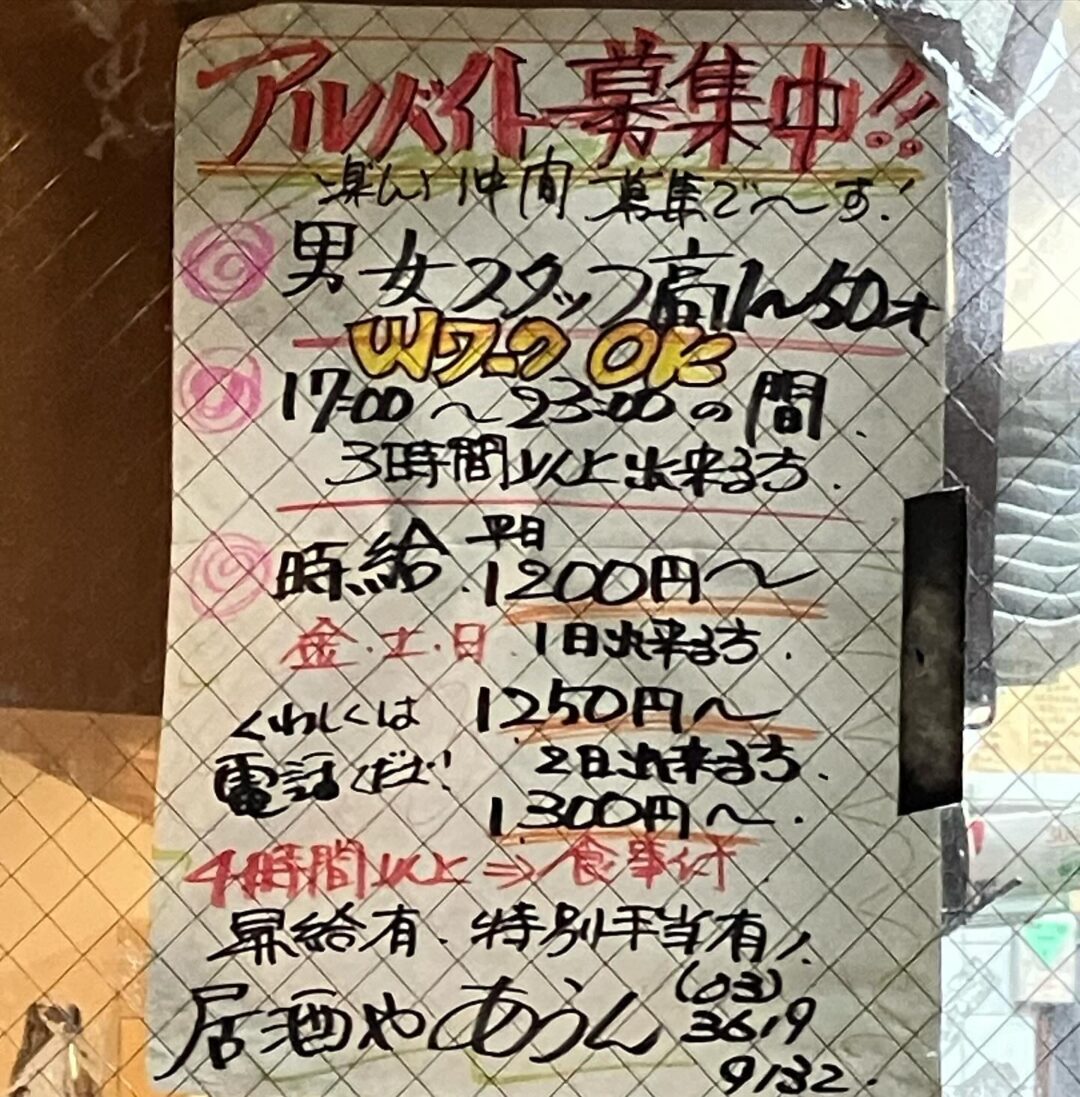 アルバイト募集中!!
楽しい仲間 募集で〜す!
男女スタッフ 高1〜50才
Wワーク OK
17:00〜23:00の間.
3時間以上出来る方.
時給 平日 1200円〜
金・土・日 1日出来る方.
1250円〜
くわしくは
電話ください!
2日出来る方.
1300円〜
4時間以上⇒食事付
昇給有. 特別手当有!
居酒や あうん
(03)
3619
9132.